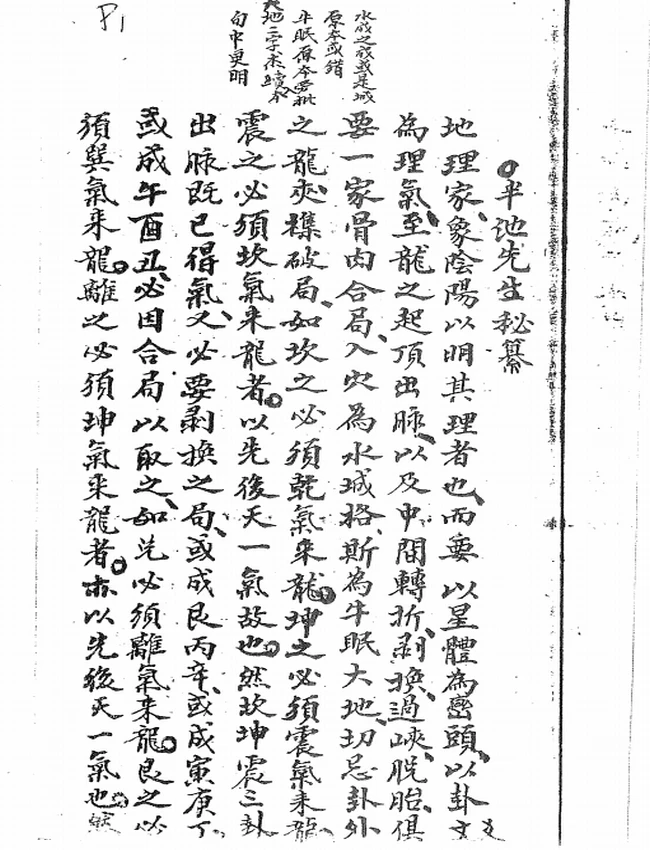 P1
水成之成或是城
原本或錯
牛眠原本
地二字未
句中更明
半池先生秘纂
地理家象陰陽以明其理者也而要以星體為巒頭以卦爻
為理氣至龍之起頂出脉以及中間轉折剝換過峽脱胎俱
要一家骨肉合局入穴為水城格斯為牛眠大地切忌卦外
之龍夾襍破局如坎之必須乾氣來龍坤之必須震氣來龍
震之必須坎氣來龍者以先後天一氣故也然坎坤震三卦
出脉既已得氣又必要剝換之局或成艮丙辛或成寅庚丁
或成午酉丑必因合局以取之如兑必須離氣來龍艮之必
須巽氣來龍離之必須坤氣來龍者亦以先後天一氣也然